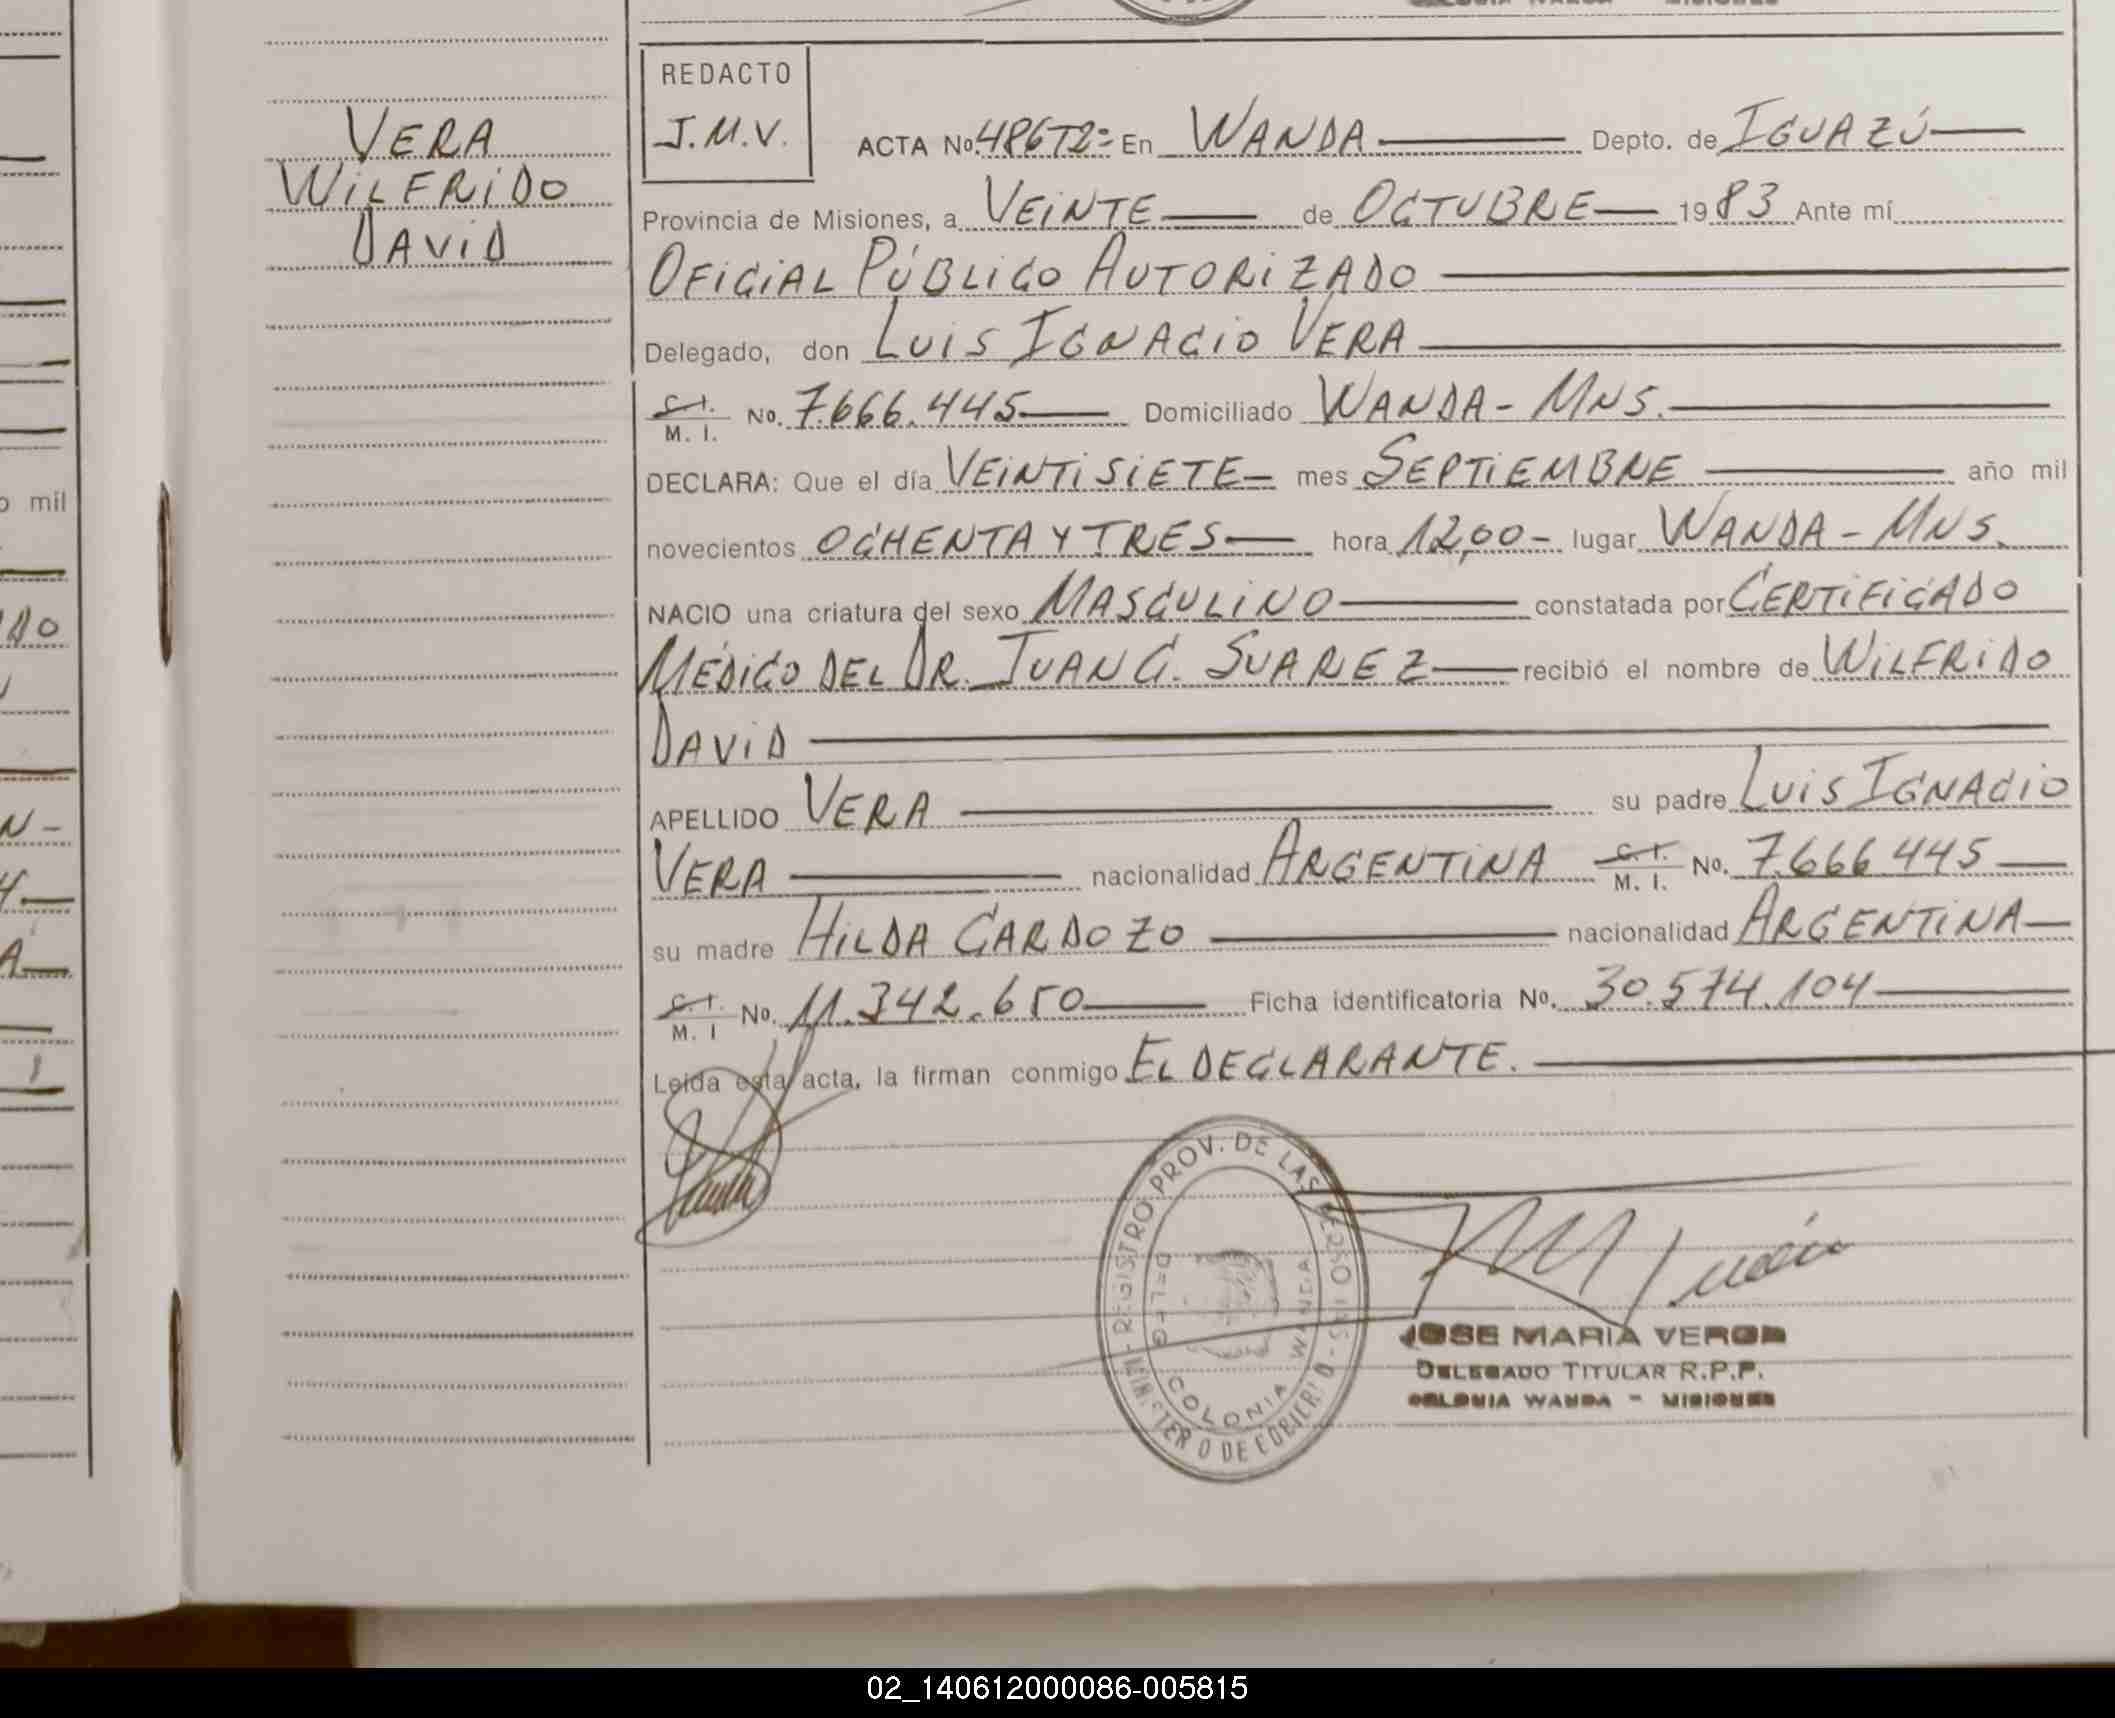 VERA
WILFRIDO
DAVID
REDACTO
J.M.V.
ACTA No. 486T2= En WANDA Depto. de IGUAZÚ
Provincia de Misiones, a VEINTE de OCTUBRE 1983 Ante mí
OFICIAL PÚBLICO AUTORIZADO
Delegado, don LUIS IGNACIO VERA
C.I. M. I. No. 7.666.445 Domiciliado WANDA - MNS.
DECLARA: Que el día VEINTISIETE mes SEPTIEMBRE año mil
novecientos OCHENTA Y TRES hora 12,00 - lugar WANDA - MNS.
NACIO una criatura del sexo MASCULINO constatada por CERTIFICADO
MÉDICO DEL DR. JUAN C. SUAREZ recibió el nombre de WILFRIDO
DAVID
APELLIDO VERA su padre LUIS IGNACIO
VERA nacionalidad ARGENTINA C.I. M. I. No. 7.666.445
su madre HILDA CARDOZO nacionalidad ARGENTINA
C.I. M. I No. 11.342.650 Ficha identificatoria No. 30.574.104
Leida esta acta, la firman conmigo EL DECLARANTE.
REGISTRO PROV. DE LAS PERSONAS - MINISTERIO DE GOBIERNO
DELEG. COLONIA WANDA
JOSE MARIA
DELEGADO TITULAR R.P.P.
COLONIA WANDA - MISIONES
o mil
02_140612000086-005815